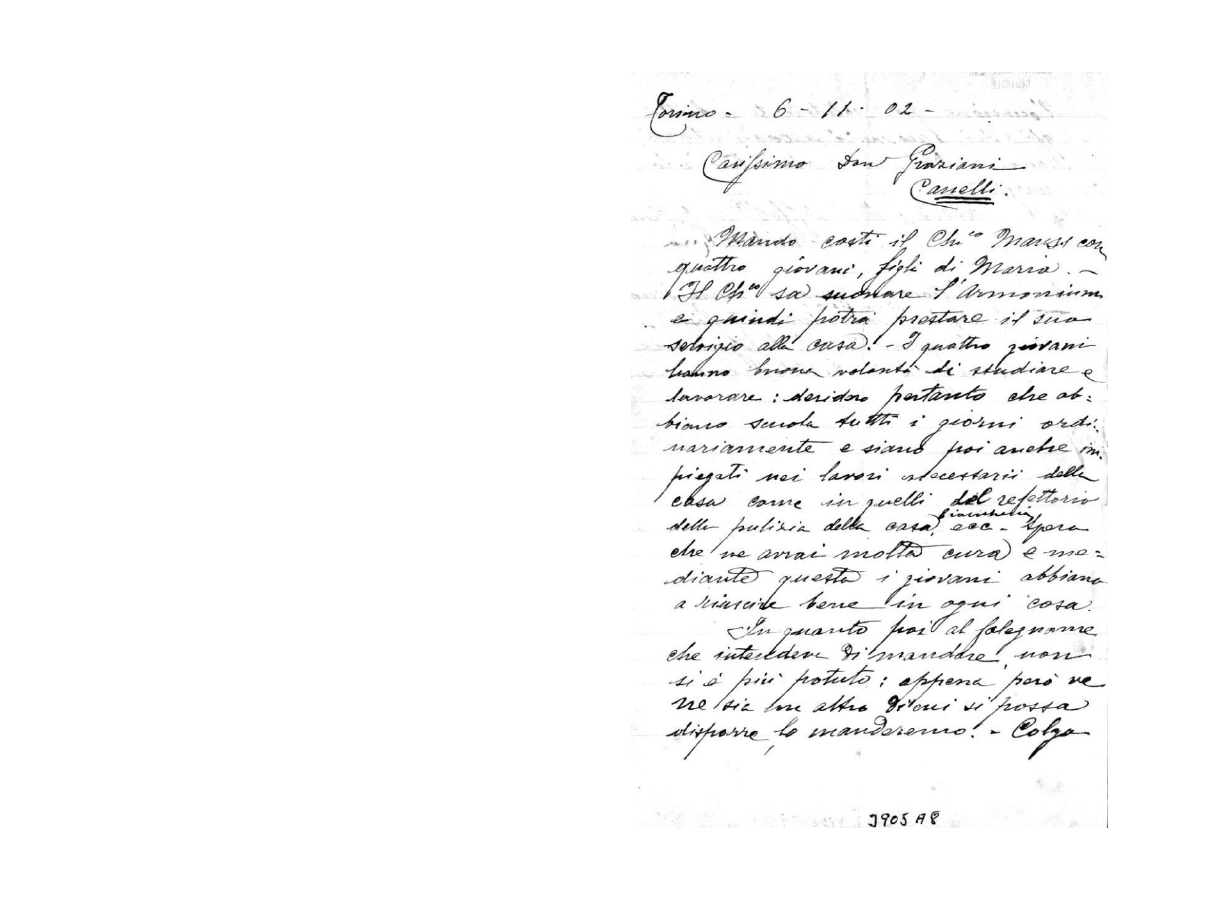 Torino - 6 - 11 - 02 -
Carissimo Don Graziani
Canelli.
Mando costì il Ch.co con
quattro giovani, figli di Maria. -
Il Ch.co sa suonare l'Armonium
e quindi potrà prestare il suo
servizio alla casa. - I quattro giovani
hanno buona volontà di studiare e
lavorare : desidero pertanto che ab=
biano scuola tutti i giorni ordi:
nariamente e siano poi anche im:
piegati nei lavori necessarii della
casa come in quelli del refettorio
della pulizia della casa, biancheria, ecc - Spero
che ne avrai molta cura e me=
diante questa i giovani abbiano
a riuscire bene in ogni cosa.
In quanto poi al falegname
che intendeva di mandare, non
si è più potuto : appena però ve
ne sia un altro di cui si possa
disporre lo manderemo. - Colgo
3905 A8